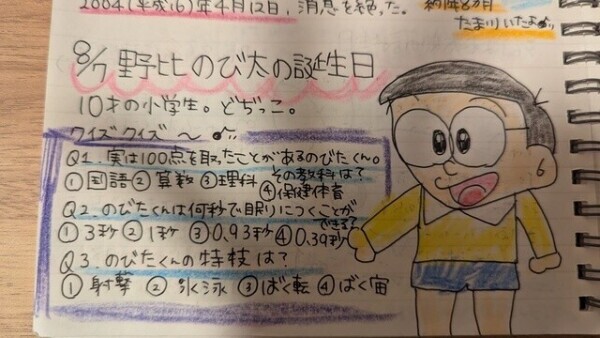 2004(平成16)年4月12日、消息を絶った。
約1年8カ月
たまりいたよ
8/7 野比のび太の誕生日
10才の小学生。どぢっこ。
クイズクイズ〜
Q1. 実は100点を取ったことがあるのびたくん。
その教科は?
①国語 ②算数 ③理科 ④保健体育
Q2. のびたくんは何秒で眠りにつくことが
できる?
①3秒 ②1秒 ③0.93秒 ④0.39秒
Q3. のびたくんの特技は?
①射撃 ②水泳 ③ばく転 ④ばく宙